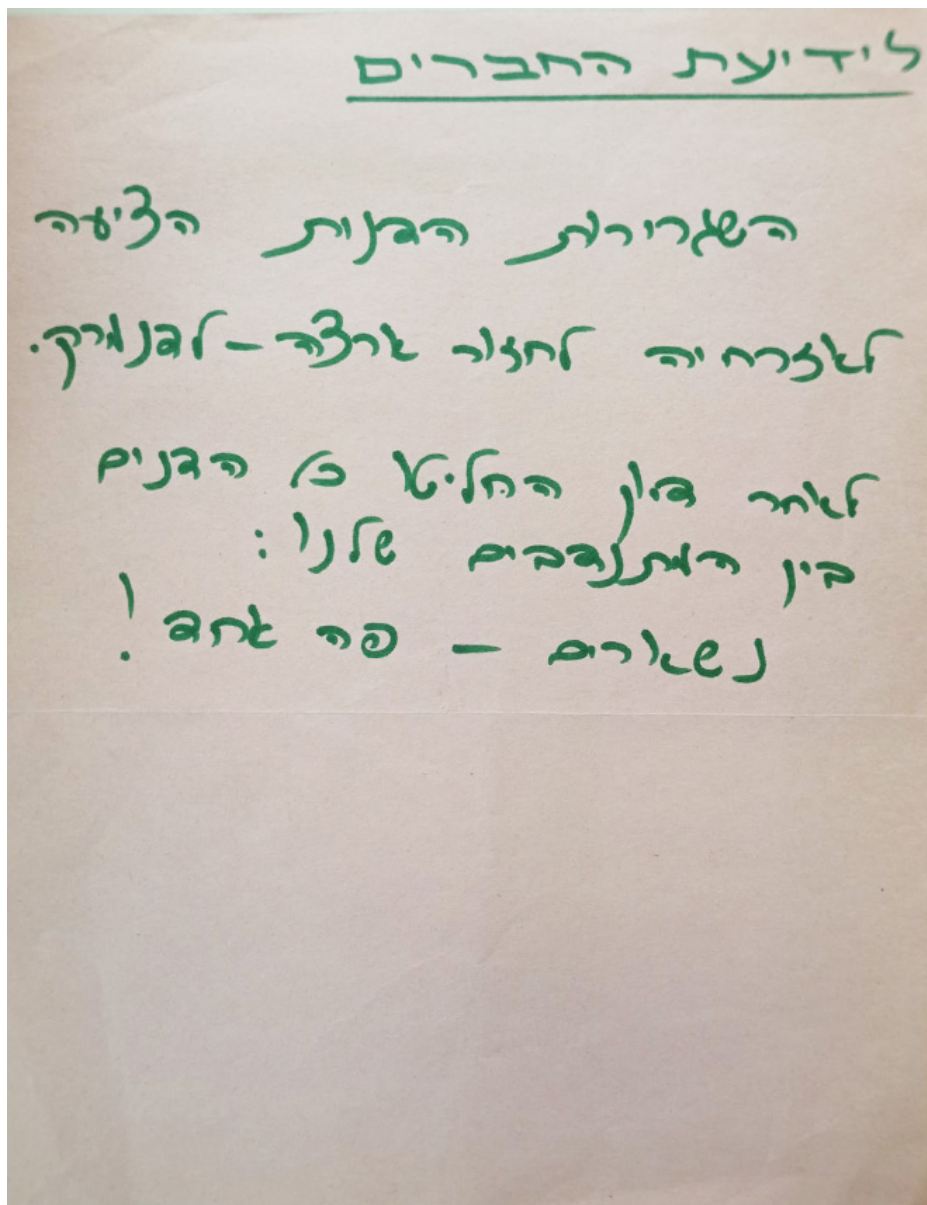 לידיעת החברים
השגרירות הדנית הציעה
לאזרחיה לחזור ארצה - לדנמרק.
לאחר דיון החליטו כל הדנים
בין המתנדבים שלנו:
נשארים - פה אחד!